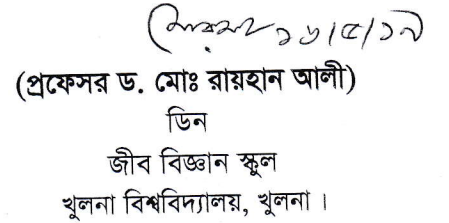 ১৬/৫/১৭
(প্রফেসর ড. মোঃ রায়হান আলী)
ডিন
জীব বিজ্ঞান স্কুল
খুলনা বিশ্ববিদ্যালয়, খুলনা ।